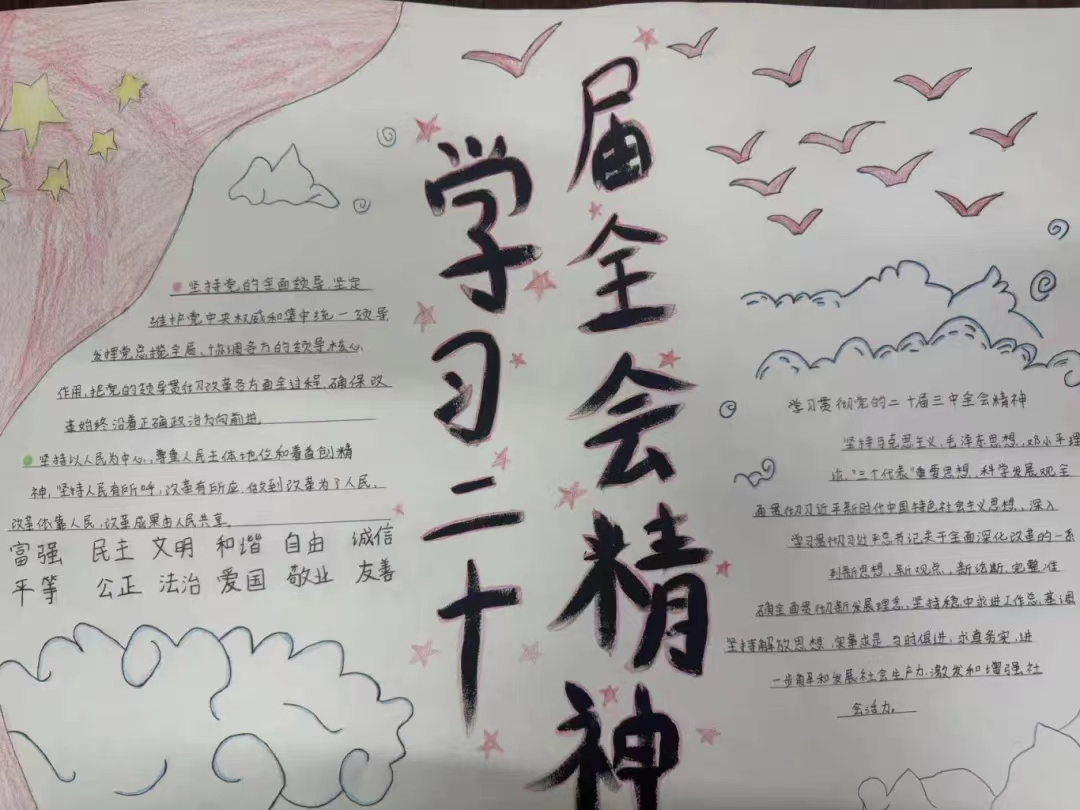 学习二十
届全会精神
坚持党的全面领导、坚定
维护党中央权威和集中统一领导
发挥党总揽全局、协调各方的领导核心
作用,把党的领导贯彻改革各方面全过程,确保改
革始终沿着正确政治方向前进.
坚持以人民为中心,尊重人民主体地位和首创精
神,坚持人民有所呼,改革有所应,做到改革为了人民,
改革依靠人民,改革成果由人民共享.
富强 民主 文明 和谐 自由 诚信
平等 公正 法治 爱国 敬业 友善
学习贯彻党的二十届三中全会精神
坚持马克思主义,毛泽东思想,邓小平理
论,"三个代表"重要思想,科学发展观全
面贯彻习近平新时代中国特色社会主义思想,深入
学习贯彻习近平总书记关于全面深化改革的一系
列新思想,新观点,新论断,完整准
确全面贯彻新发展理念,坚持稳中求进工作总基调
坚持解放思想,实事求是,与时俱进,求真务实,进
一步解和发展社会生产力,激发和增强社
会活力.